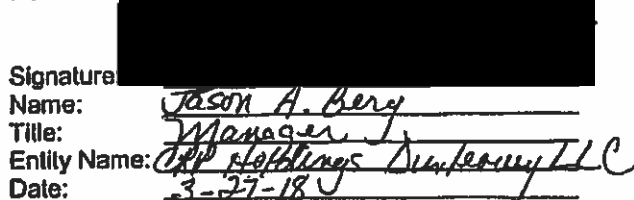 Signature
Name: Jason A. Berg
Title: Manager
Entity Name: Holdings LLC
Date: 3-27-18